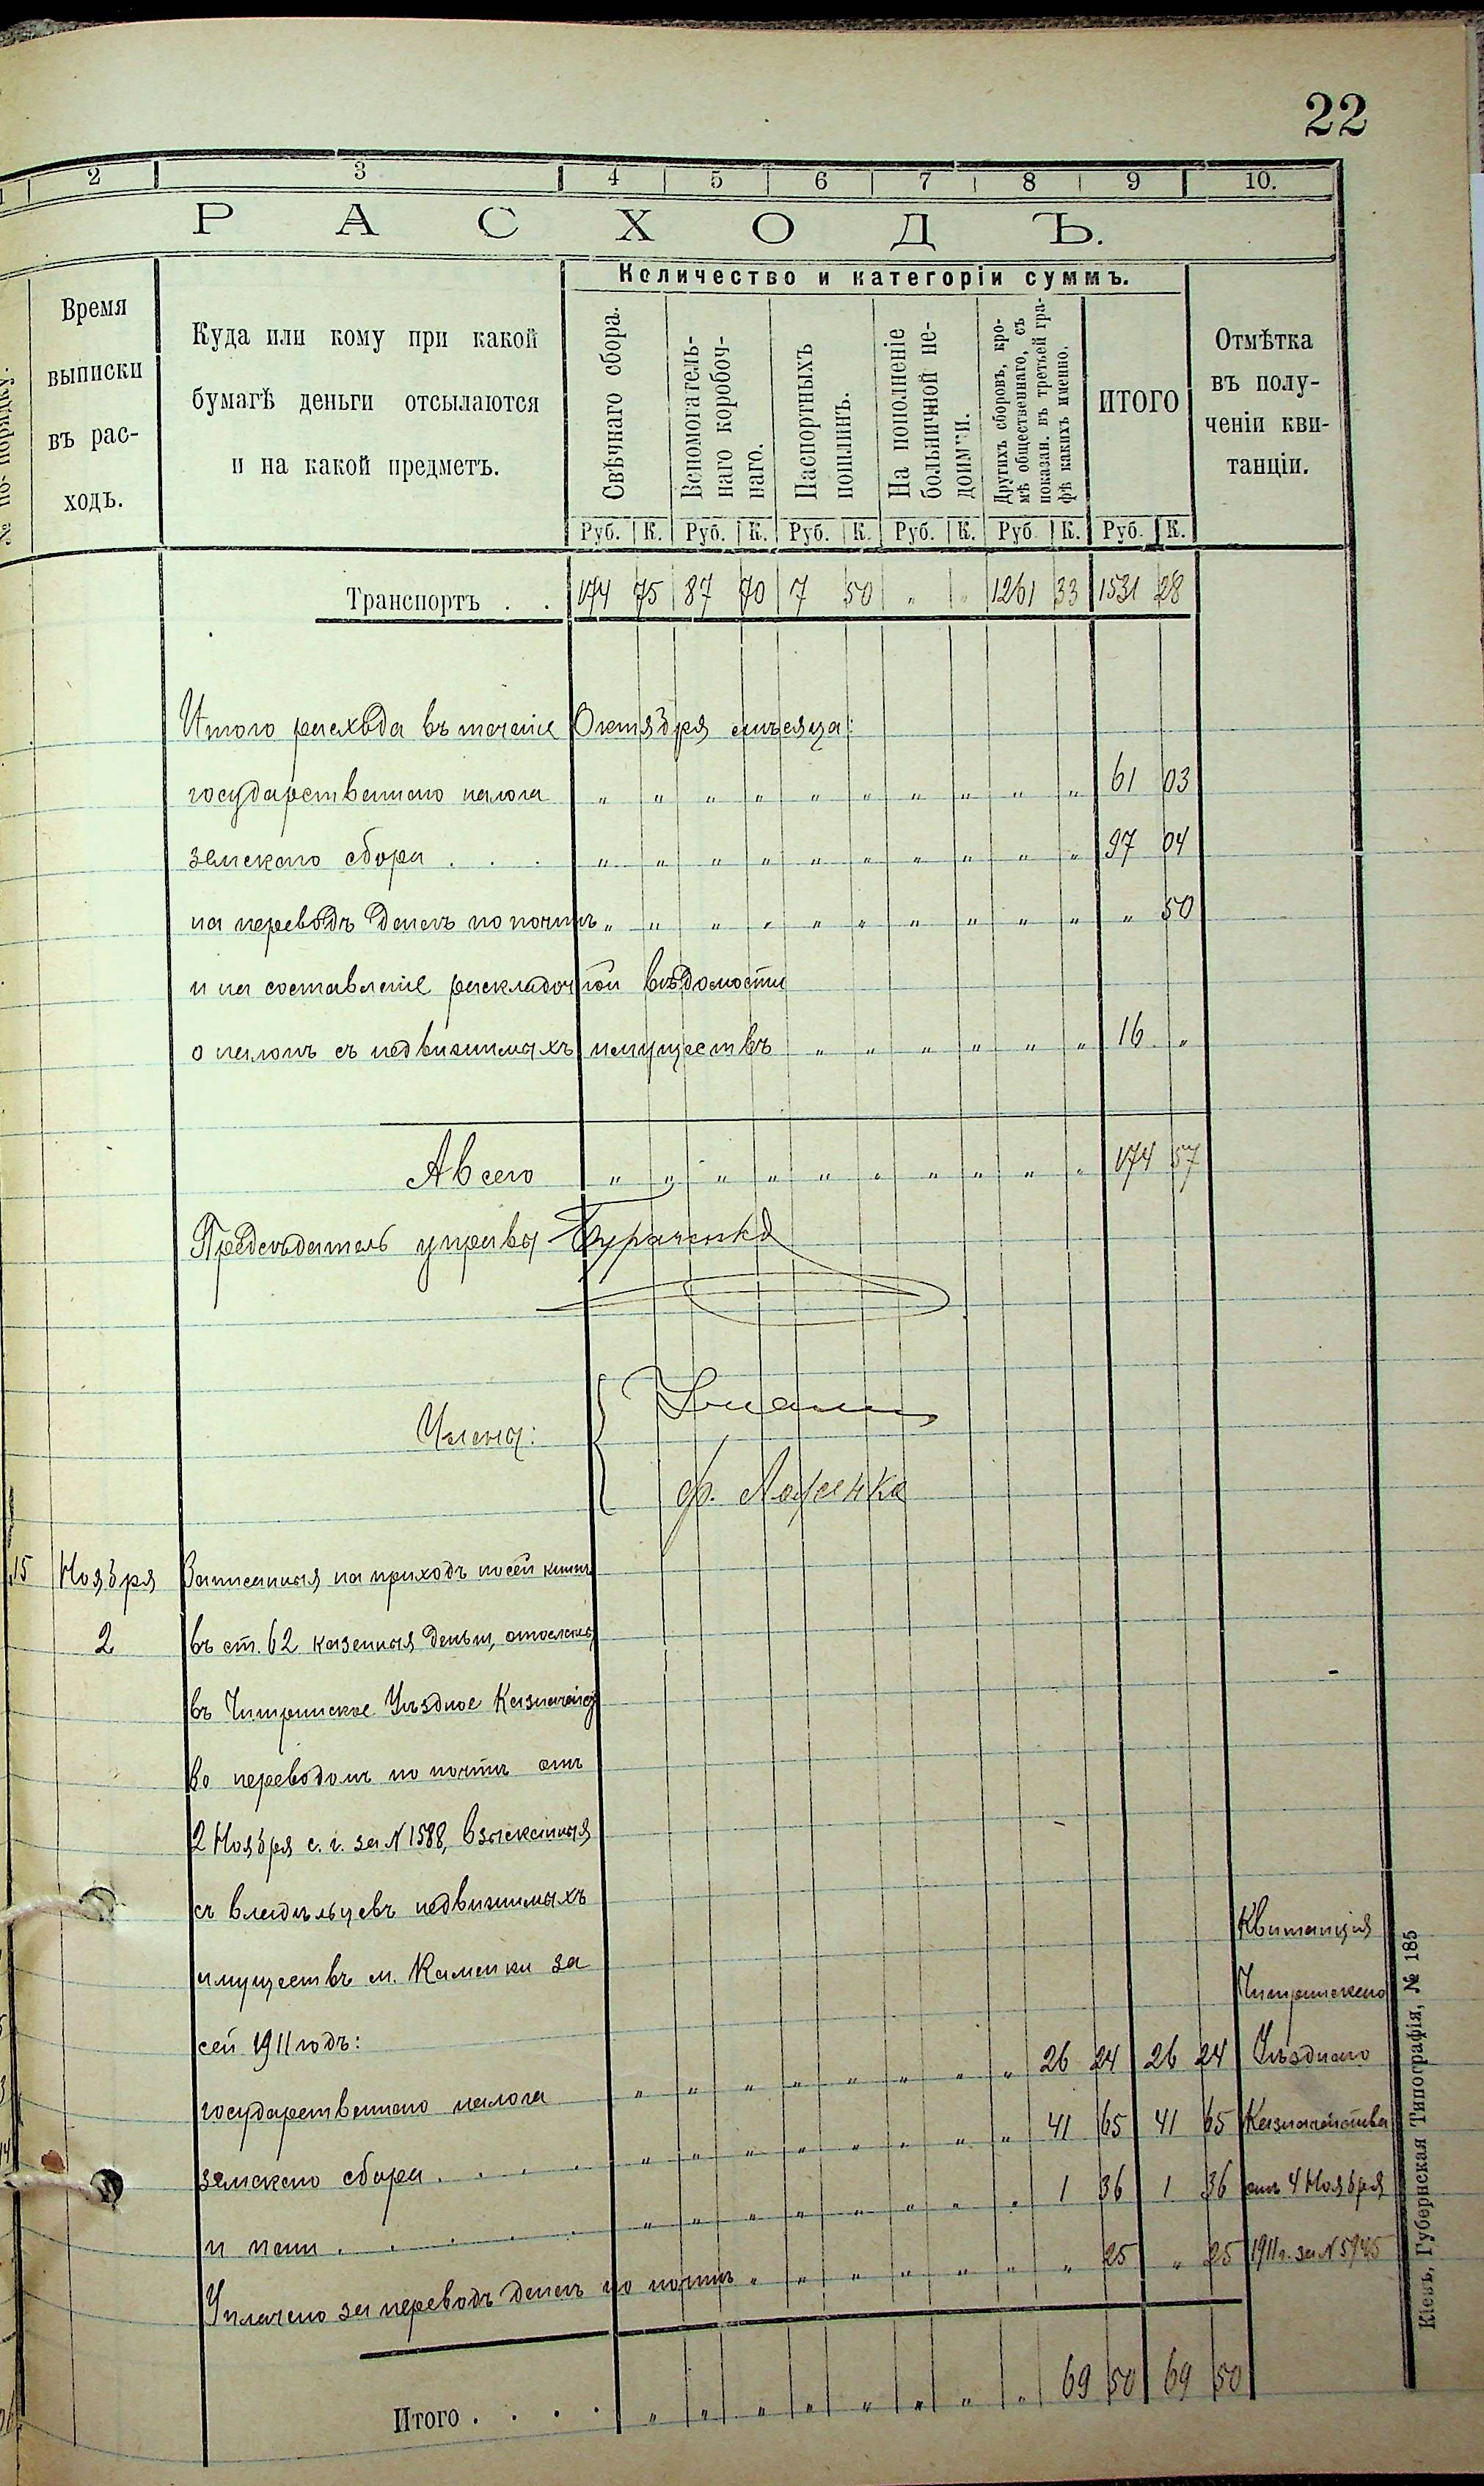 22
1 2 3 4 5 6 7 8 9 10.
РАСХОДЪ.
№ по порядку.
Время выписки въ рас-ходъ.
Куда или кому при какой
бумагѣ деньги отсылаются
и на какой предметъ.
Количество и категоріи суммъ.
Свѣчнаго сбора.
Вспомогатель-
наго коробоч-
наго.
Паспортныхъ
пошлинъ.
На пополненіе
больничной не-
доимки.
Другихъ сборовъ, кро-
мѣ общественнаго, съ
показан. въ третьей гра-
фѣ какихъ именно.
ИТОГО
Отмѣтка
въ полу-
ченіи кви-
танціи.
Руб. К. Руб. К. Руб. К. Руб. К. Руб. К. Руб. К.
Транспортъ . . 174 75 87 70 7 50 " " 1261 33 1531 28
Итого расхода въ теченіе Октября мѣсяца:
государственнаго налога " " " " " " " " " " 61 03
земскаго сбора . . . " " " " " " " " " " 97 04
на переводъ денегъ по почтѣ " " " " " " " " " " " 50
и на составленіе раскладочной вѣдомости
о налогѣ съ недвижимыхъ имуществъ " " " " " " 16 "
А всего " " " " " " " " " " 174 57
Предсѣдатель управы Бураченко
Члены:
Ф. Ложенко
15 Ноября Записанныя на приходъ по сей книгѣ
2 въ ст. 62 казенныя деньги, отосланы
въ Чигринское Уѣздное Казначейст
во переводомъ по почтѣ отъ
2 Ноября с. г. за N 1588, взысканныя
съ владѣльцевъ недвижимыхъ
имуществъ м. Каменки за
сей 1911 годъ:
государственнаго налога " " " " " " " " 26 24 26 24
земскаго сбора . . . . " " " " " " " " 41 65 41 65
и пени . . . . " " " " " " " " 1 36 1 36
Уплачено за переводъ денегъ по почтѣ " " " " " " " 25 " 25
Квитанція
Чигринскаго
Уѣзднаго
Казначейства
отъ 4 Ноября
1911 г. за N 5945
Итого . . . . " " " " " " " " 69 50 69 50
Кіевъ, Губернская Типографія, № 185